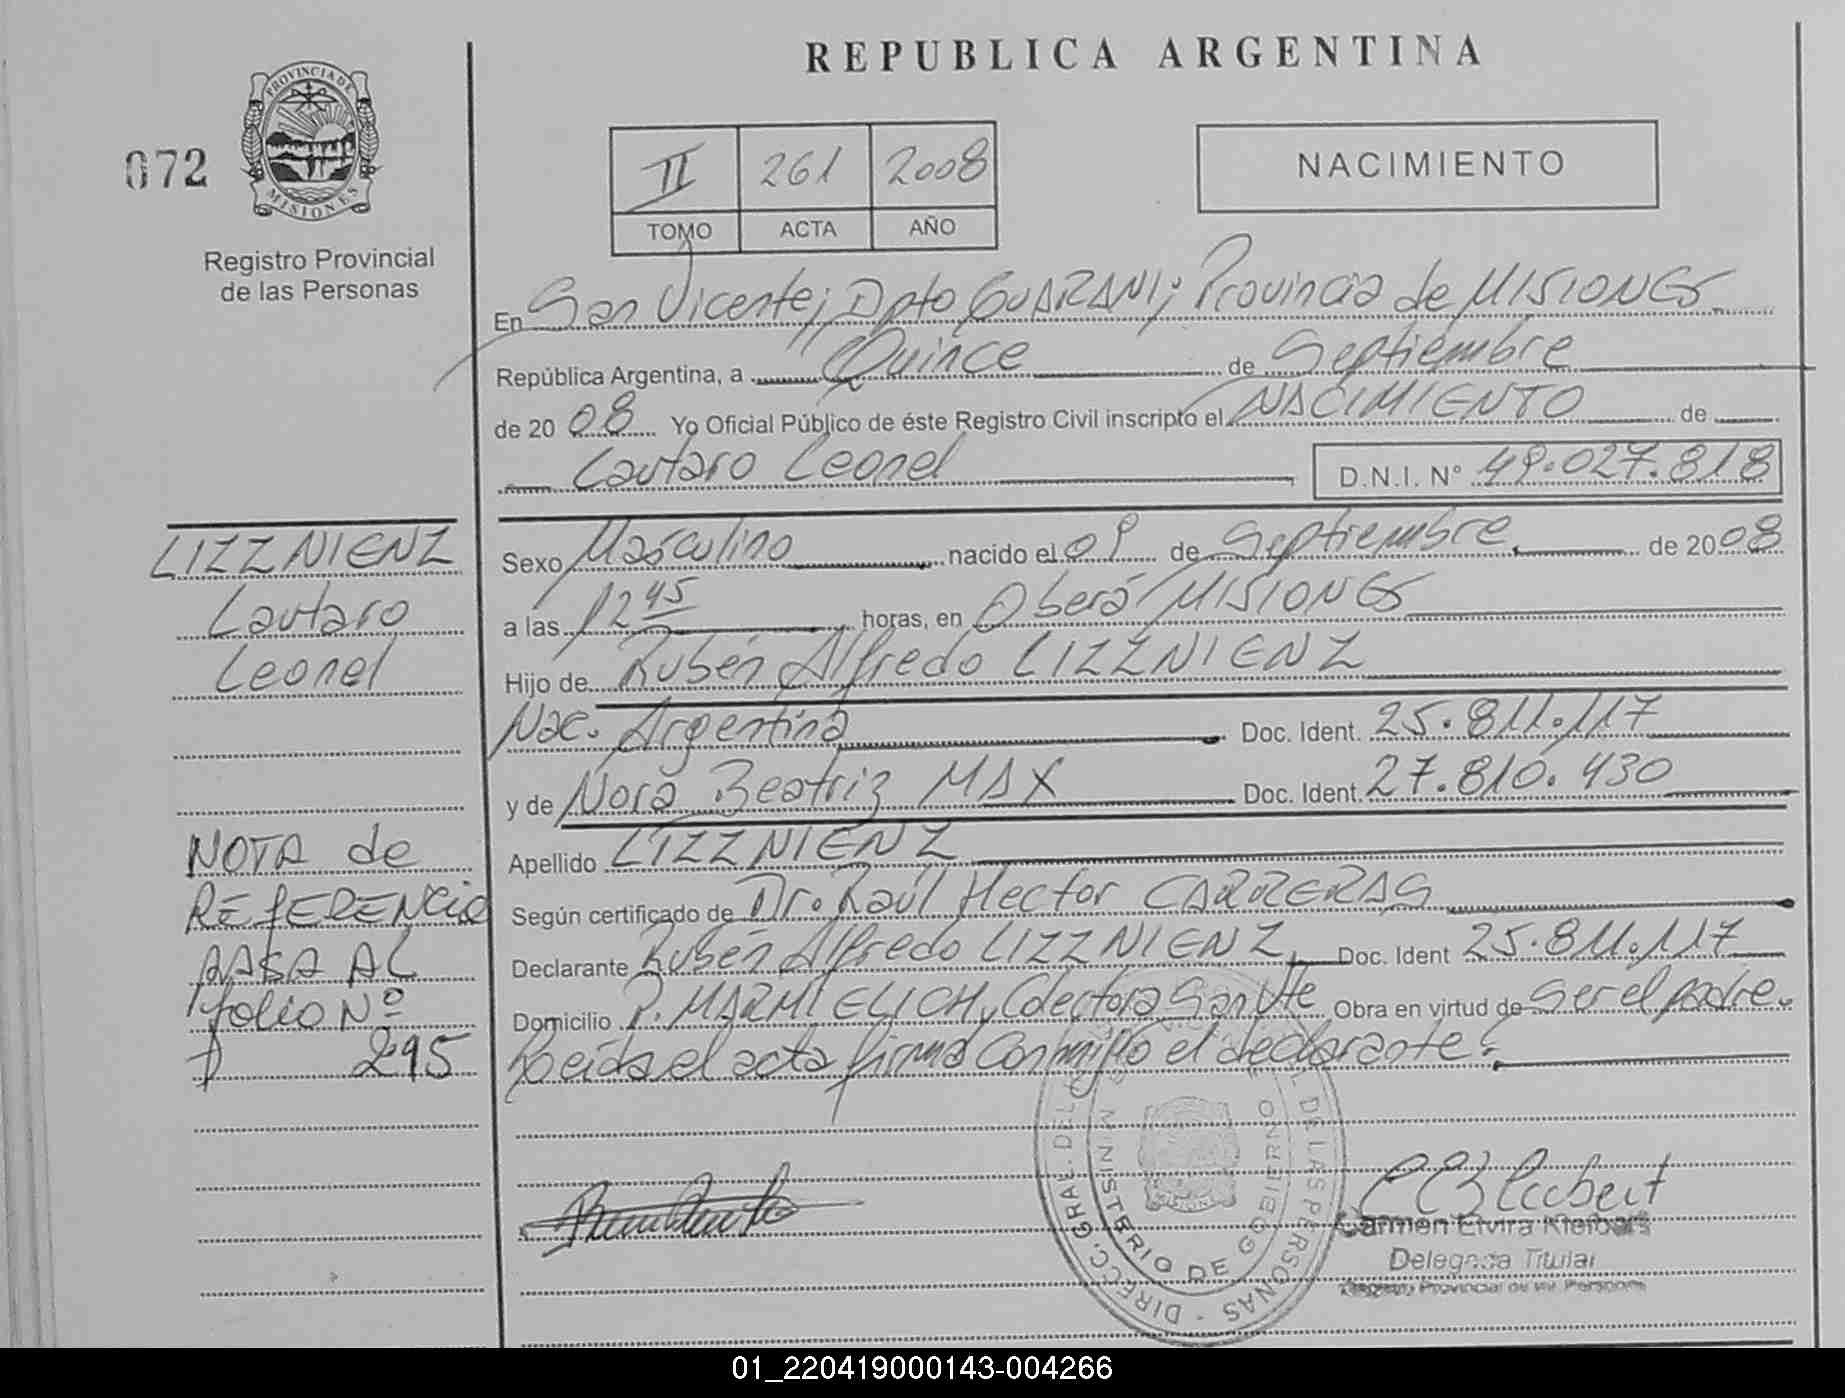 REPUBLICA ARGENTINA
PROVINCIA DE
MISIONES
072
II 261 2008
TOMO ACTA AÑO
NACIMIENTO
Registro Provincial
de las Personas
En San Vicente, Dpto GUARANI; Provincia de MISIONES
República Argentina, a Quince de Septiembre
de 2008 Yo Oficial Público de éste Registro Civil inscripto el NACIMIENTO de
Lautaro Leonel D.N.I. N° 49.027.818
LIZZNIENZ
Lautaro
Leonel
Sexo Masculino nacido el 09 de Septiembre de 2008
a las 12 45 horas, en Oberá MISIONES
Hijo de Rubén Alfredo LIZZNIENZ
Nac. Argentina Doc. Ident. 25.811.117
y de Nora Beatriz MAX Doc. Ident. 27.810.430
Apellido LIZZNIENZ
Según certificado de Dr. Raúl Hector CARRERAS
Declarante Rubén Alfredo LIZZNIENZ, Doc. Ident 25.811.117
Domicilio P. MARMELICH, Colectora San Vte Obra en virtud de ser el padre.
Leída el acta firma conmigo el declarante.
NOTA de
REFERENCIA
PASA AL
folio Nº
295
DIRECC. GRAL. DEL DE LAS PERSONAS
MINISTERIO DE GOBIERNO
Carmen Elvira
Delegada Titular
Registro Provincial de las Personas
01_220419000143-004266